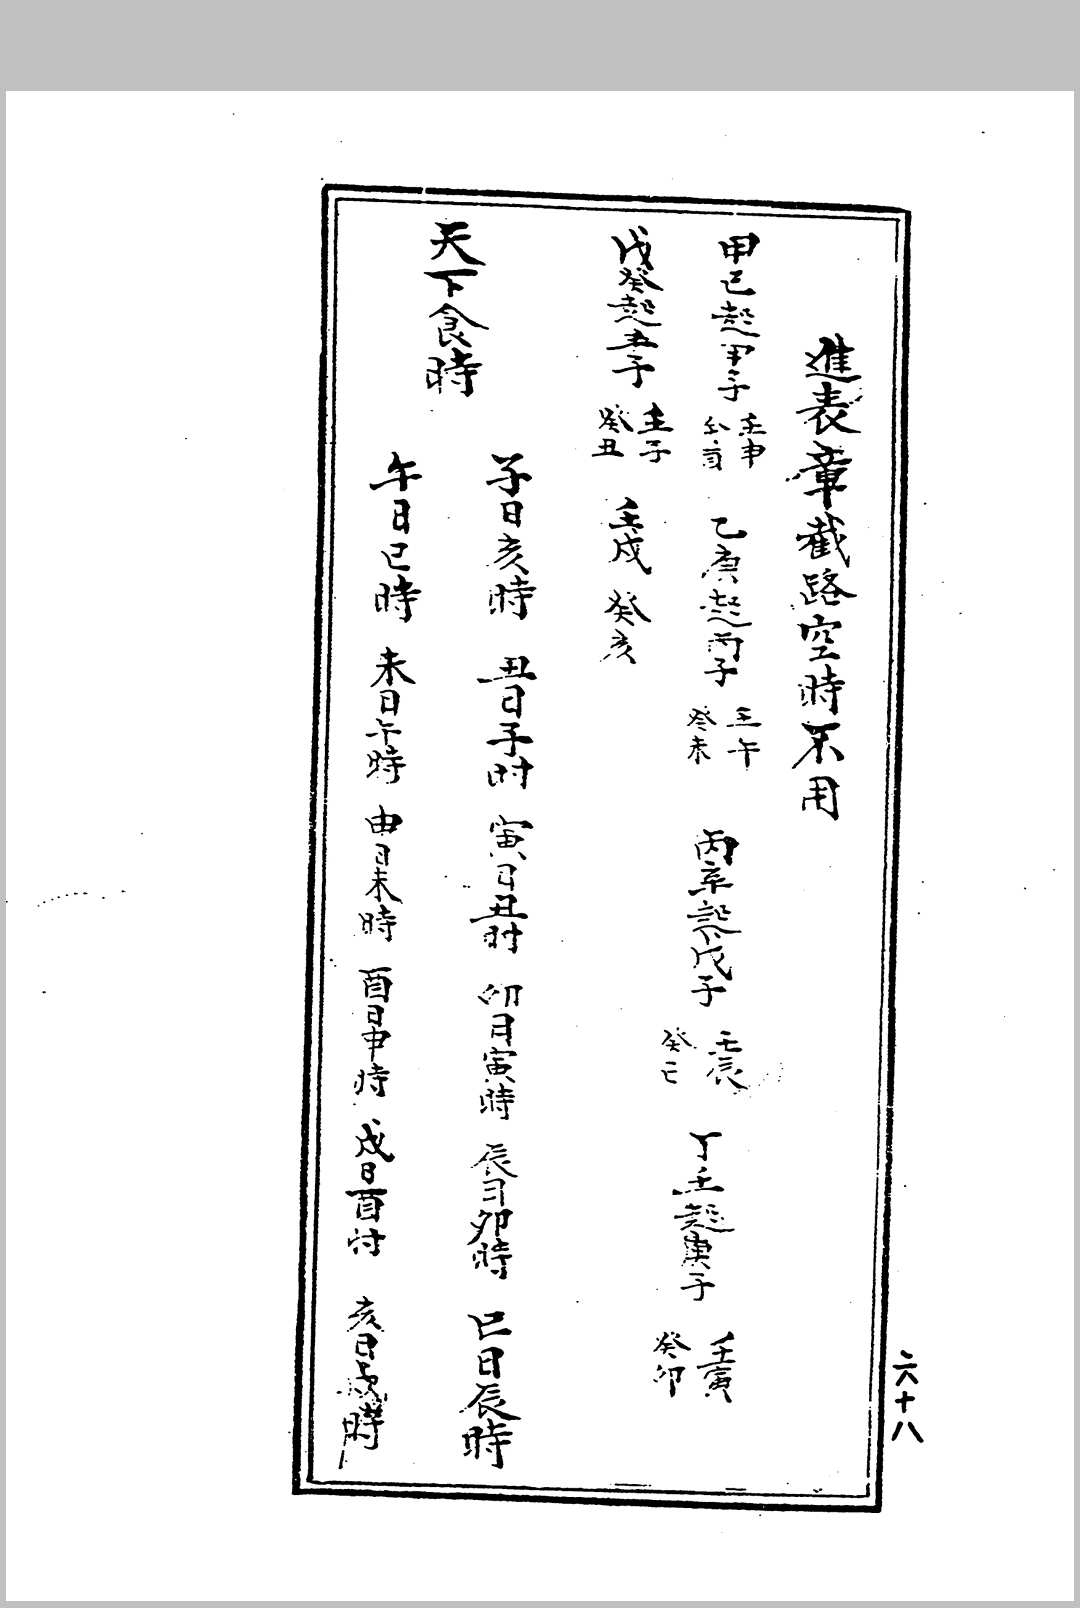 進表章截路空時不用
甲己起甲子 壬申 癸酉 乙庚起丙子 壬午 癸未 丙辛起戊子 壬辰 癸巳 丁壬起庚子 壬寅 癸卯
戊癸起壬子 壬子 癸丑 壬戌 癸亥
天下食時
子日亥時 丑日子时 寅日丑时 卯日寅時 辰日卯時 巳日辰時
午日巳時 未日午時 申日未時 酉日申時 戌日酉时 亥日戌時
六十八